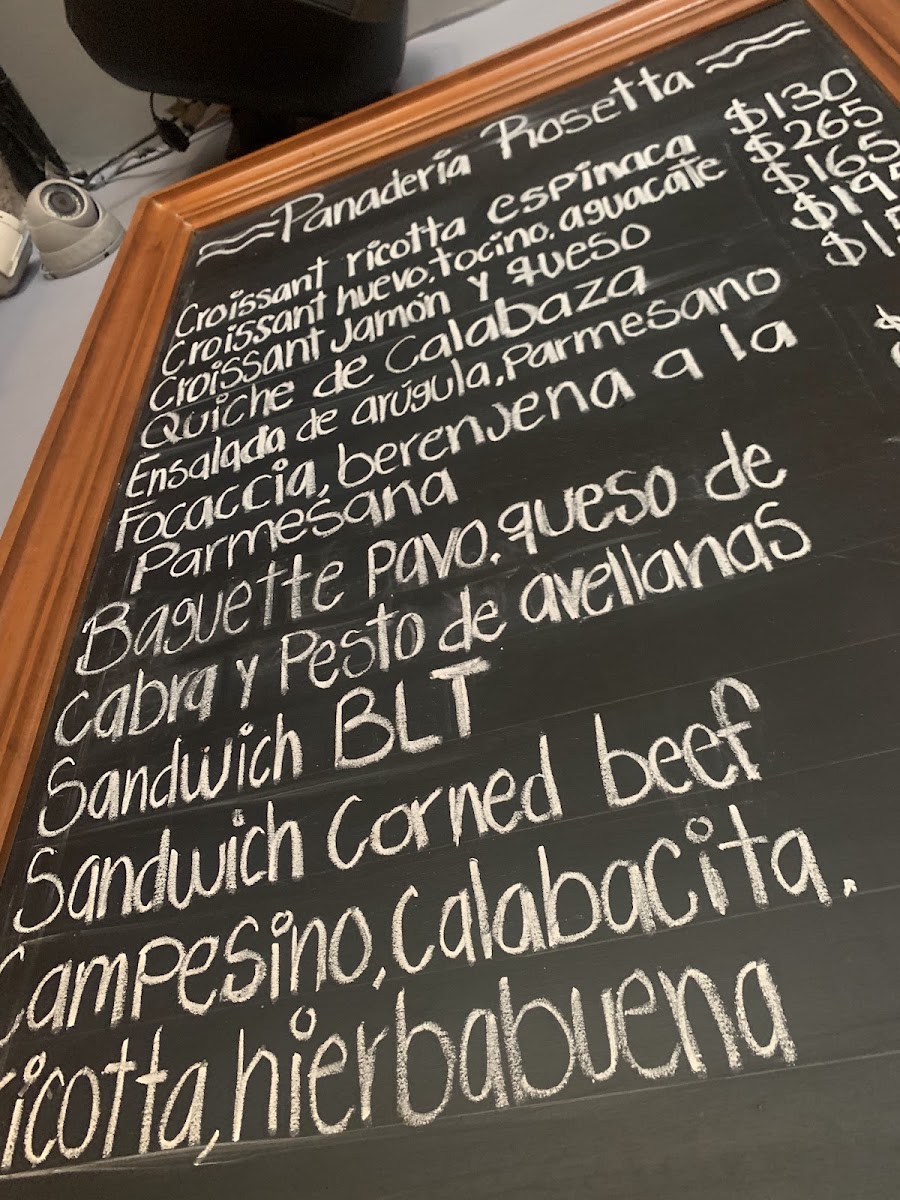 Panadería Rosetta
Croissant ricotta espinaca $130
Croissant huevo, tocino, aguacate $265
Croissant Jamón y queso $165
Quiche de Calabaza
Ensalada de arúgula, Parmesano
Focaccia, berenjena a la
Parmesana
Baguette Pavo, queso de
cabra y Pesto de avellanas
Sandwich BLT
Sandwich Corned beef
Campesino, Calabacita,
ricotta, hierbabuena